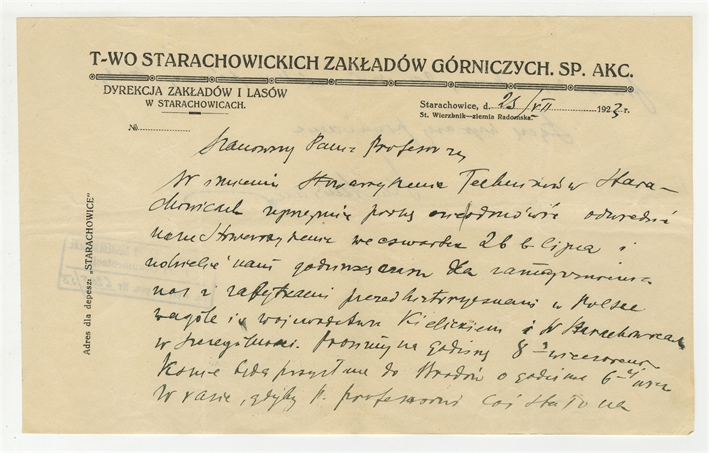 T-WO STARACHOWICKICH ZAKŁADÓW GÓRNICZYCH. SP. AKC.
DYREKCJA ZAKŁADÓW I LASÓW
W STARACHOWICACH.
Starachowice, d. 25/VII 1923 r.
St. Wierzbnik—ziemia Radomska.
№
Adres dla depesz: „STARACHOWICE”
Szanowny Panie Profesorze
W imieniu Stowarzyszenia Techników w Stara-
chowicach uprzejmie proszę odwiedzić
nasze Stowarzyszenie we czwartek 26 b. lipca i
udzielić nam dla zaznajomienia
nas z zabytkami przedhistorycznemi w Polsce
wogóle i w województwie Kieleckiem i w Starachowicach
w szczególności. Prosimy na godzinę 8 wieczorem.
Konie będą przysłane do o godzinie 6
W razie, gdyby p. profesorowi coś stało na